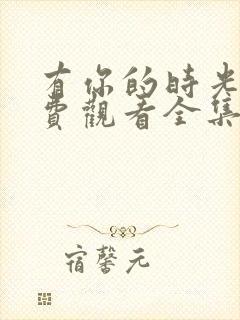 有你的時光
費觀看全集
宿馨元